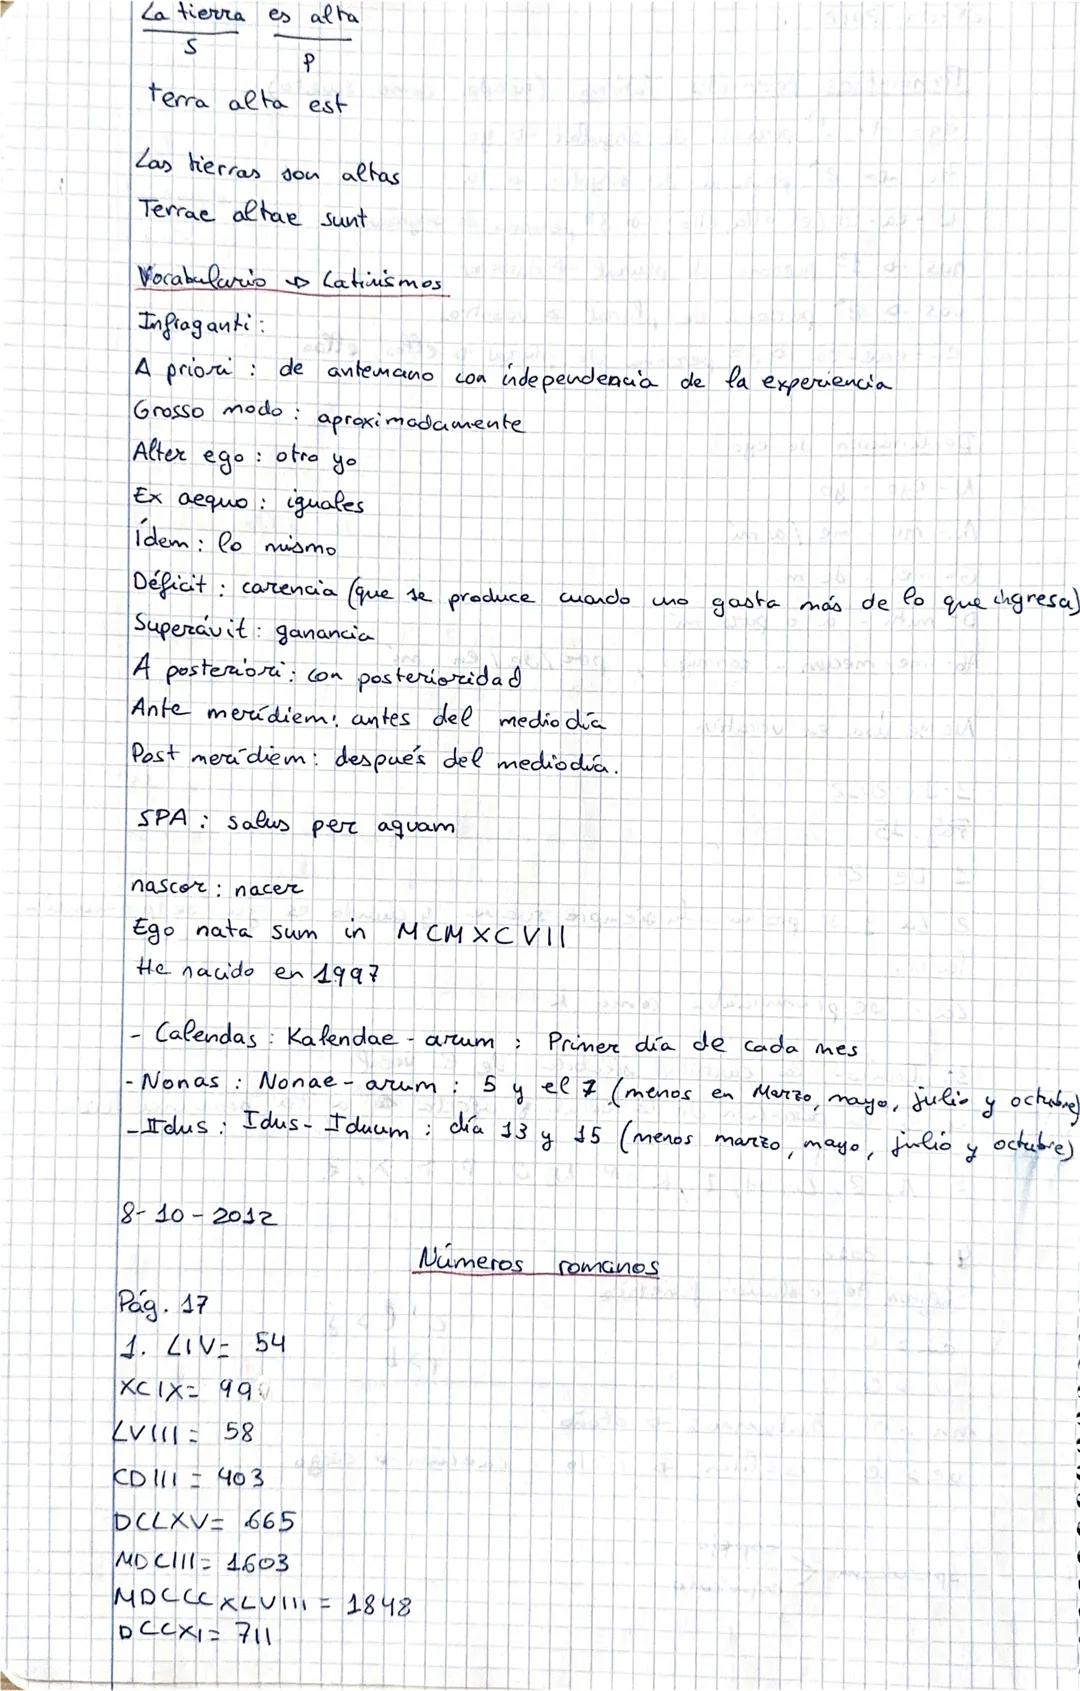 La tierra es alta
S P
terra alta est
Las tierras son altas
Terrae altae sunt
Vocabulario → Latinismos
Infraganti:
A priori: de antemano con independencia de la experiencia
Grosso modo: aproximadamente
Alter ego: otro yo
Ex aequo: iguales
Ídem: lo mismo
Déficit: carencia (que se produce cuando uno gasta más de lo que ingresa)
Superávit: ganancia
A posteriori: con posterioridad
Ante merídiem: antes del mediodía
Post merídiem: después del mediodía.
SPA: salus per aquam
nascor: nacer
Ego nata sum in MCMXCVII
He nacido en 1997
- Calendas: Kalendae - arum: Primer día de cada mes
- Nonas: Nonae - arum: 5 y el 7 (menos en Marzo, mayo, julio y octubre)
- Idus: Idus - Iduum: día 13 y 15 (menos marzo, mayo, julio y octubre)
8-10-2012
Números romanos
Pág. 17
1. LIV= 54
XCIX= 99
LVIII= 58
CDIII= 403
DCLXV= 665
MDCIII= 1603
MDCCCXLVIII= 1848
DCCXI= 711